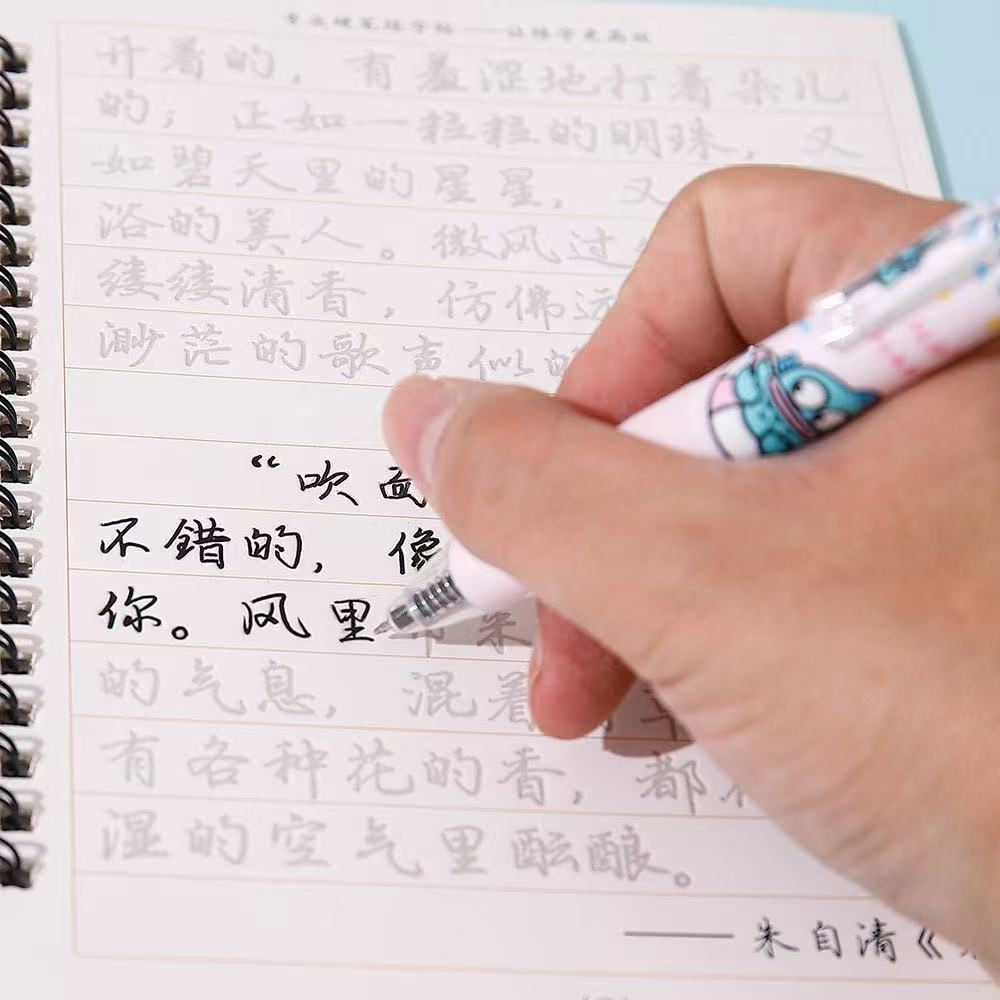 专业硬笔练字帖——让练字更高效
开着的，有羞涩地打着朵儿
的；正如一粒粒的明珠，又
如碧天里的星星，又
浴的美人。微风过
缕缕清香，仿佛远
渺茫的歌声似的
“吹面
不错的，像
你。风里带来
的气息，混着青草
有各种花的香，都在
湿的空气里酝酿。
——朱自清《